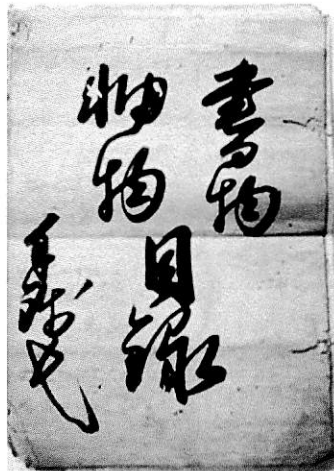 書物
軸物
目録